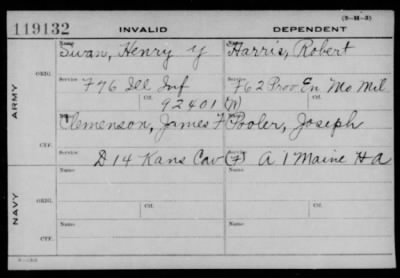 (3-M-3)
119132 INVALID DEPENDENT
Name Name
Swan, Henry Y Harris, Robert
ORIG.
Service Service
F 76 Ill Inf F 62 Prov En Mo Mil
Ctf. Ctf.
92401 (N)
ARMY
Name
Clemenson, James F Pooler, Joseph
CTF.
Service
D 14 Kans Cav (F) A 1 Maine H A
Name Name
ORIG.
Ctf. Ctf.
NAVY
Name Name
CTF.